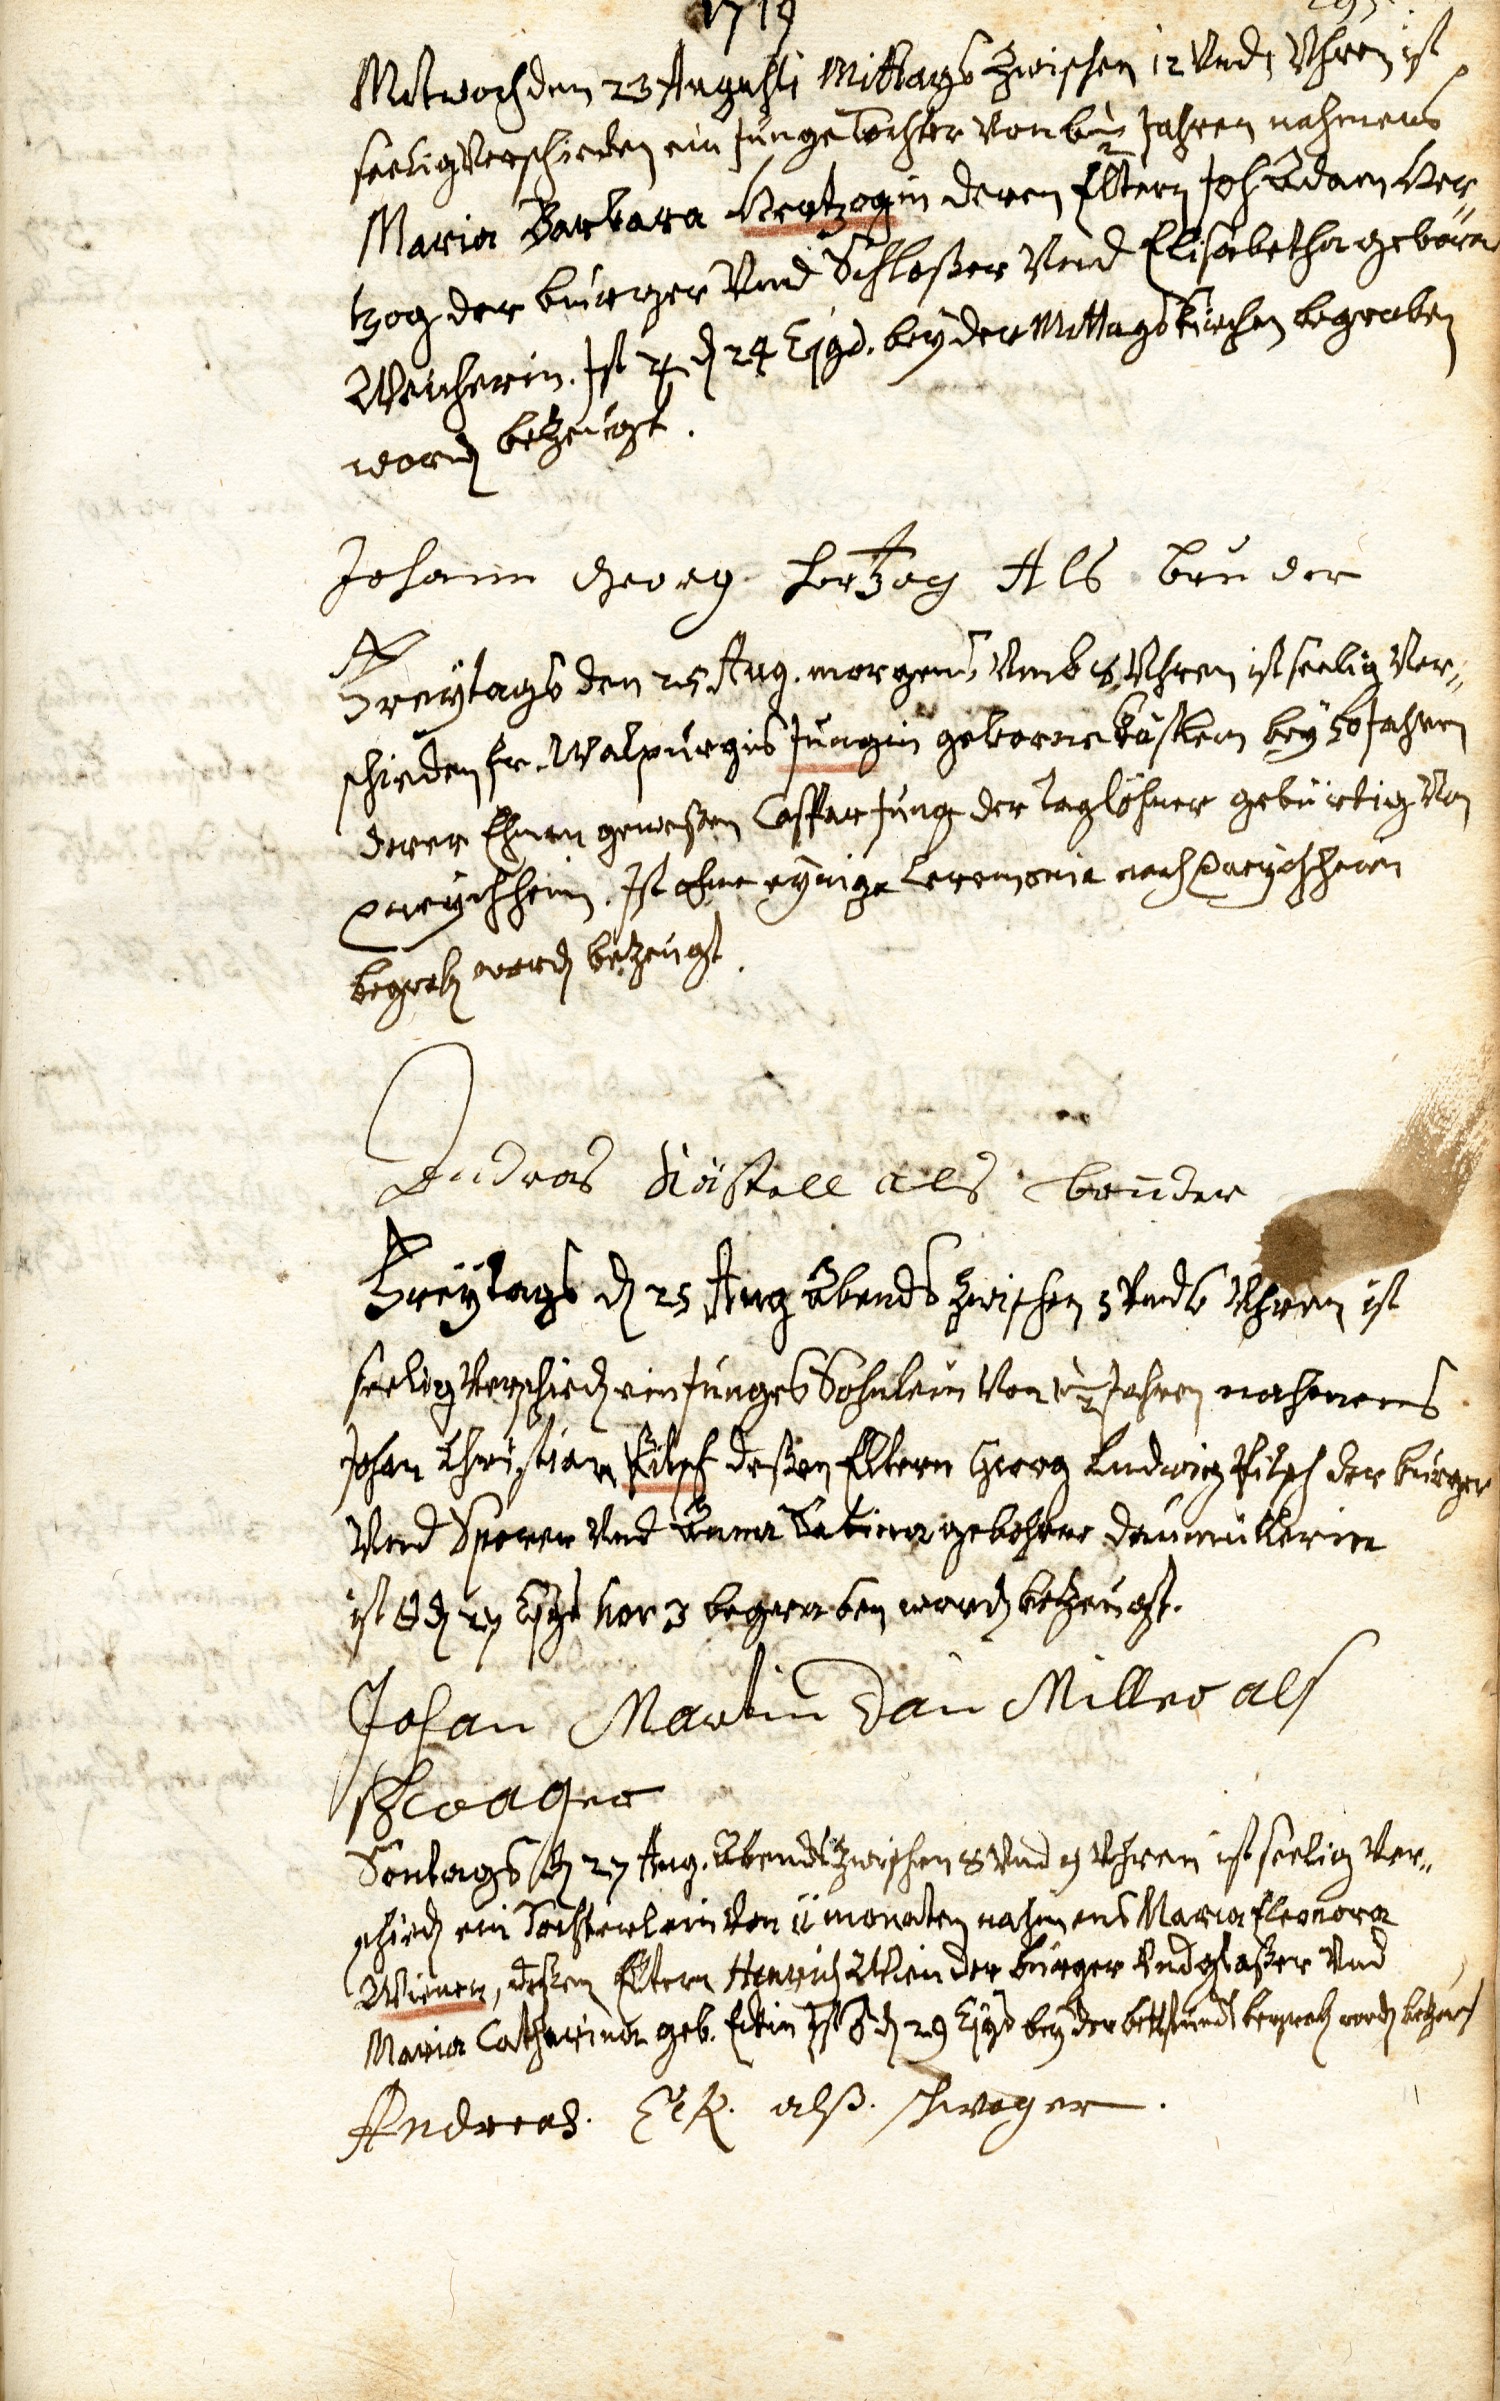 1719
Mitwoch den 23 Augusti Mittags zwischen 12 Vnd 1 Uhren ist
seelig Verschieden ein junge Tochter von 6 1/2 Jahren nahmens
Maria Barbara Hertzogin deren Eltern Joh Adam Her„
tzog der burger Vnd Schloßer Vnd Elisabetha geborn
Weicherin. Ist ♃ d 24 Ejgd. bey der Mittags kirchen begraben
word betzeugt.
Johann Georg Hertzog Als bruder
Freytags den 25 Aug. morgens Vmb 8 Uhren ist seelig Ver„
schieden fr. Walpurgis Jungin geborne Kästlern bey 50 Jahren
derer Ehman geweßen Caspar Jung der Taglöhner gebürtig Von
. Ist ohne eynige Ceremonie nach
begrab word betzeugt.
Andreas Kästell als bruder
Freytags d 25 Aug Abends zwischen 5 Vnd 6 Uhren ist
seelig Verschied ein junges Söhnlein Von 1/2 Jahren nahmens
Johan Christian deßen Eltern Georg Ludwig der burger
Vnd Sporer Vnd Anna Sabina gebohrne Daumüllerin
ist d 27 Ejgd hor 3 begraben word betzeugt.
Johan Martin Dau Miller als
schwager
Sontags d 27 Aug. Abends zwischen 8 Vnd 9 Uhren ist seelig Ver„
schied ein Töchterlein Von 11 monaten nahmens Maria Eleonora
Wienen, deßen Eltern Henrich Wien der burger Vnd glaßer Vnd
Maria Catharina geb. Eckin Ist ♂ d 29 Ejgd bey der bettstund begrab word betzeugt
Andreas. Eck. alß. schwager.